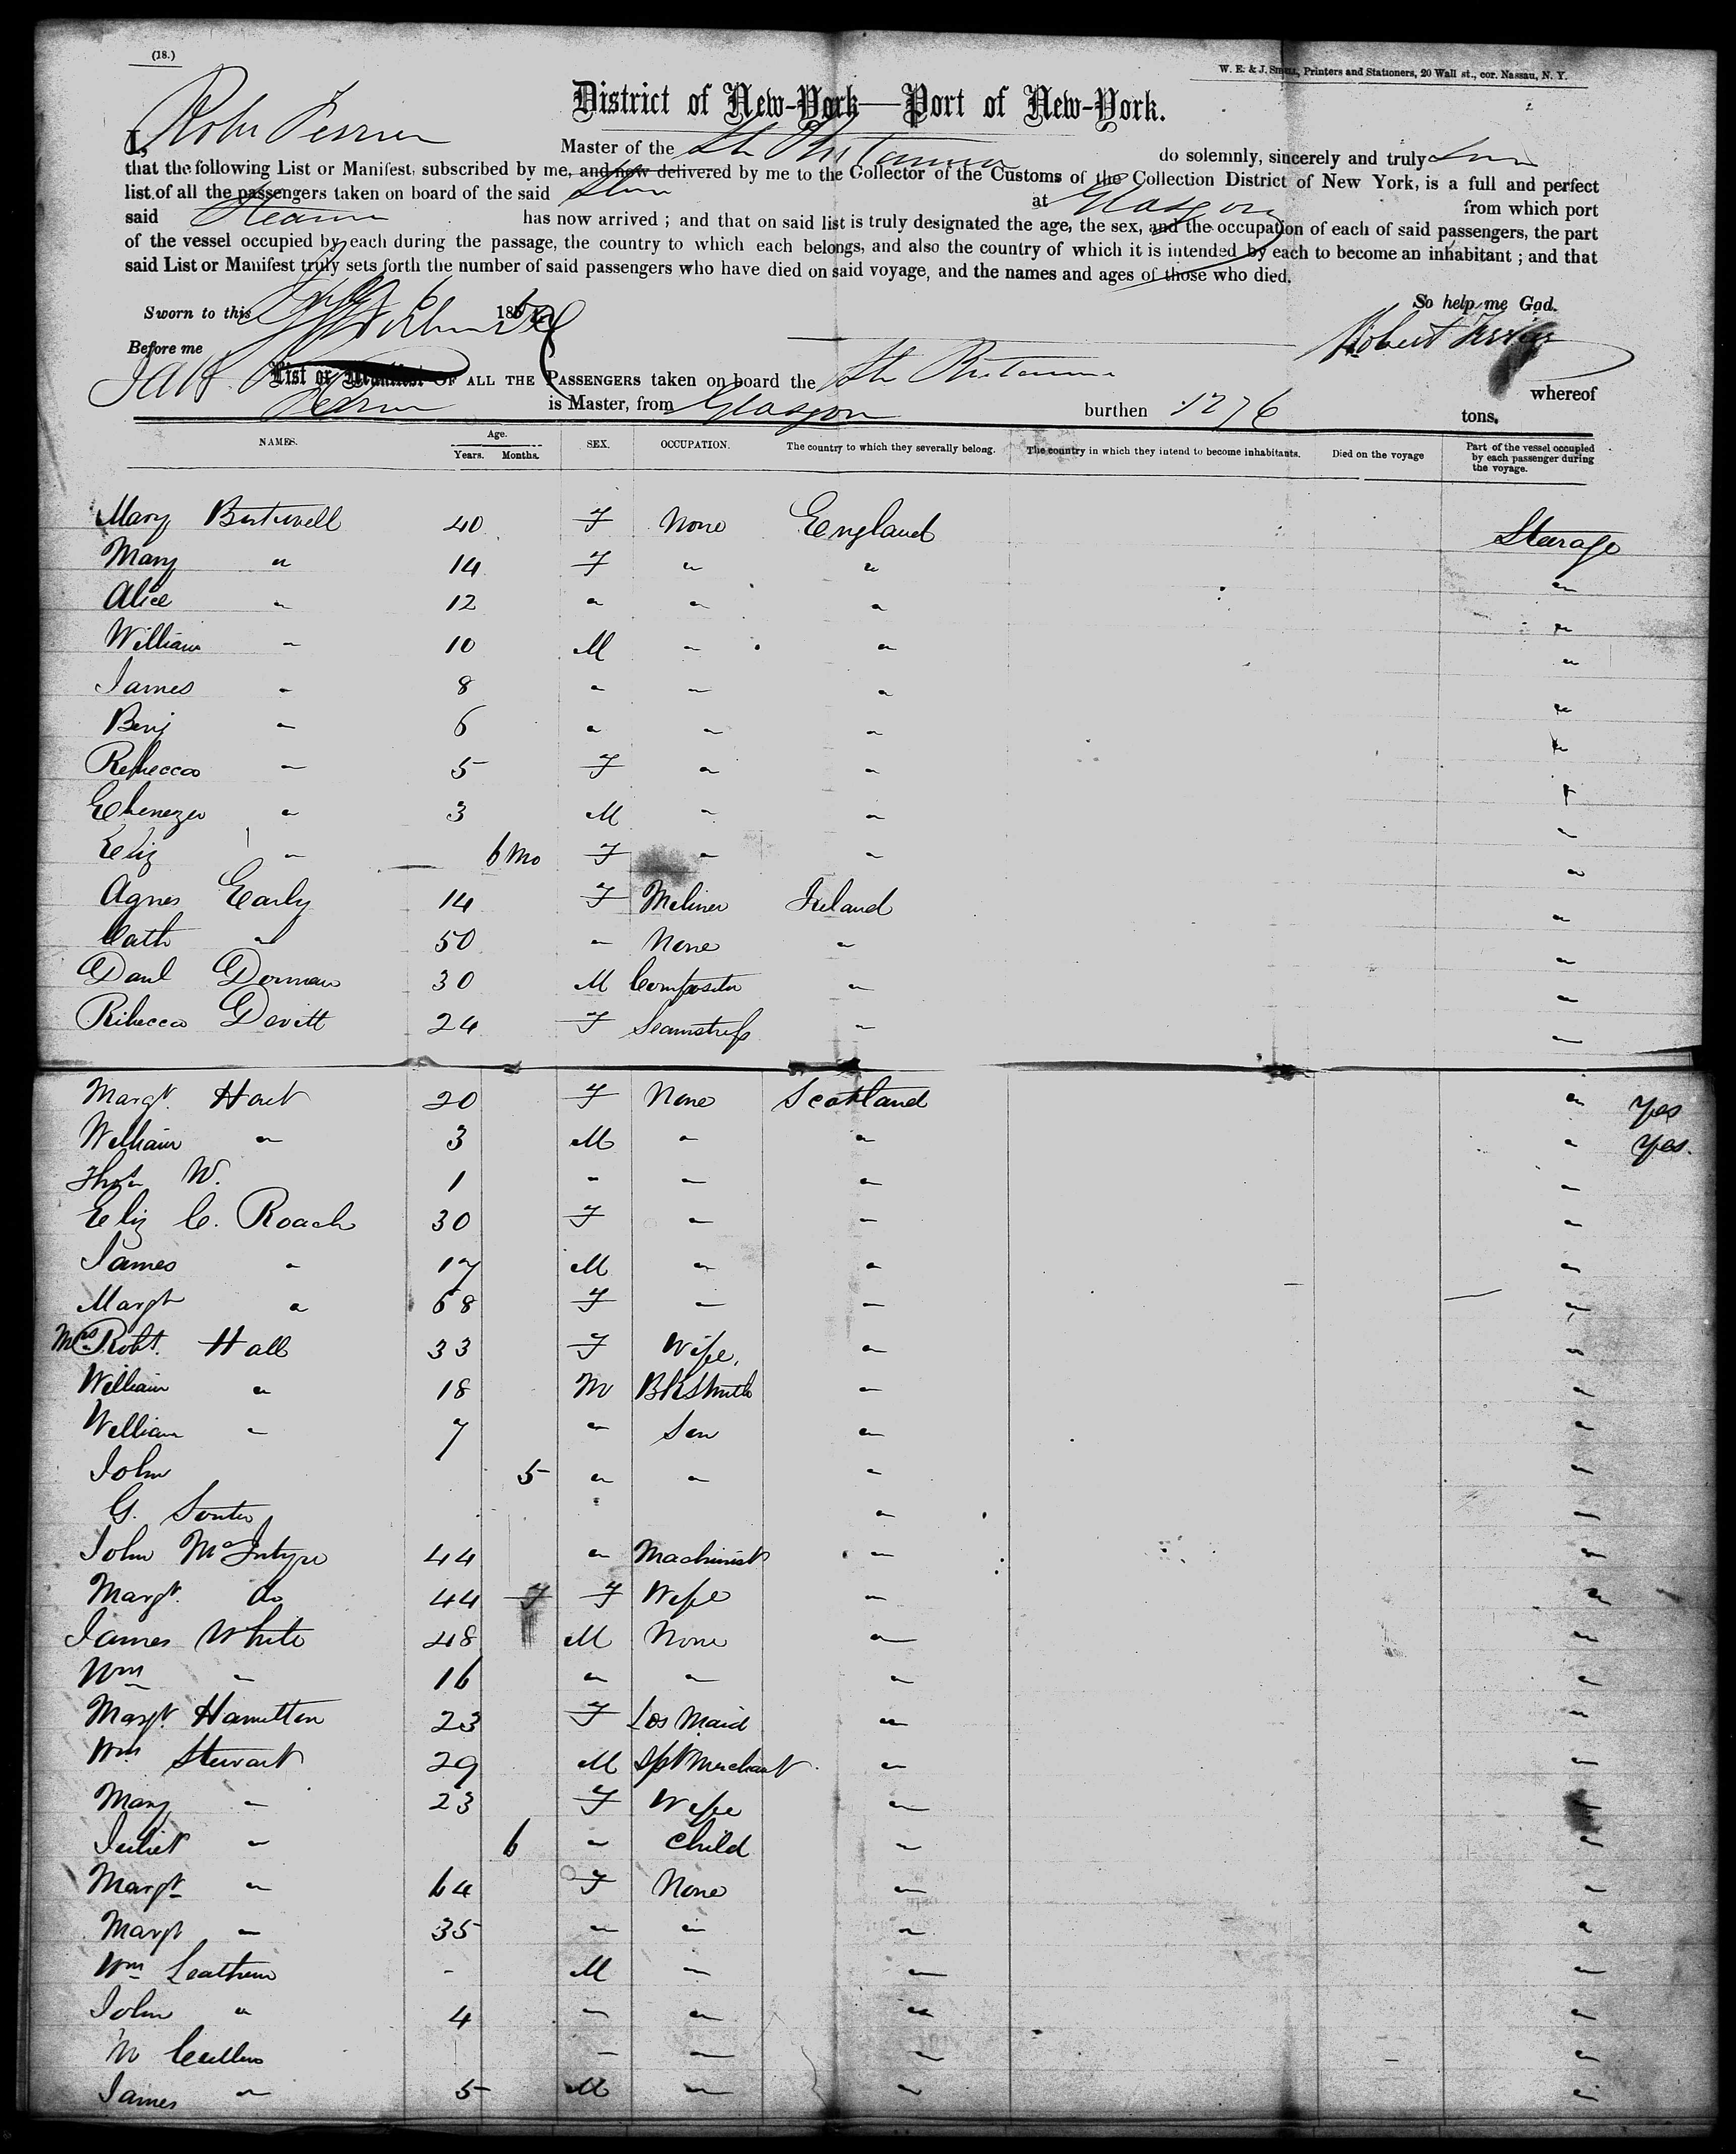 (18.)
W. E. & J. Sibell, Printers and Stationers, 20 Wall st., cor. Nassau, N. Y.
District of New-York—Port of New-York.
I, Robt Ferrier Master of the Str Britannia do solemnly, sincerely and truly
that the following List or Manifest, subscribed by me, and now delivered by me to the Collector of the Customs of the Collection District of New York, is a full and perfect
list of all the passengers taken on board of the said at Glasgow from which port
said Steamer has now arrived ; and that on said list is truly designated the age, the sex, and the occupation of each of said passengers, the part
of the vessel occupied by each during the passage, the country to which each belongs, and also the country of which it is intended by each to become an inhabitant ; and that
said List or Manifest truly sets forth the number of said passengers who have died on said voyage, and the names and ages of those who died.
So help me God.
Sworn to this 6 186
Before me Robert Ferrier
List or Manifest OF ALL THE PASSENGERS taken on board the Str Britannia whereof
is Master, from Glasgow burthen 1276 tons.
NAMES. Age. Years. Months. SEX. OCCUPATION. The country to which they severally belong. The country in which they intend to become inhabitants. Died on the voyage Part of the vessel occupied by each passenger during the voyage.
Mary 40 F None England Steerage
Mary " 14 F " " "
Alice " 12 " " " "
William " 10 M " " "
James " 8 " " " "
Benj " 6 " " " "
Rebecca " 5 F " " "
Ebenezer " 3 M " " "
Eliz " 6 Mo F " " "
Agnes Early 14 F Meliner Ireland "
Cath " 50 " None " "
Danl Dornan 30 M Compositor " "
Ribecca Devitt 24 F Seamstress " "
Margt. Hart 20 F None Scotland " Yes
William " 3 M " " " Yes.
Thos W. 1 " " " "
Eliz C. Roach 30 F " " "
James " 17 M " " "
Margt " 68 F " " "
Mrs Robt. Hall 33 F Wife, " "
William " 18 M BlkSmith " "
William " 7 " Son " "
John 5 " " " "
G. Souter " "
John McIntyre 44 " Machinist " "
Margt. do 44 F F Wife " "
James White 48 M None " "
Wm " 16 " " " "
Margt. Hamilton 23 F Maid " "
Wm Stewart 29 M Merchant " "
Mary " 23 F Wife " "
Juliet " 6 " Child " "
Margt " 64 F None " "
Margt " 35 " " " "
Wm Leathem - M " " "
John " 4 " " " "
M Cullen " " " "
James " 5 M " " "